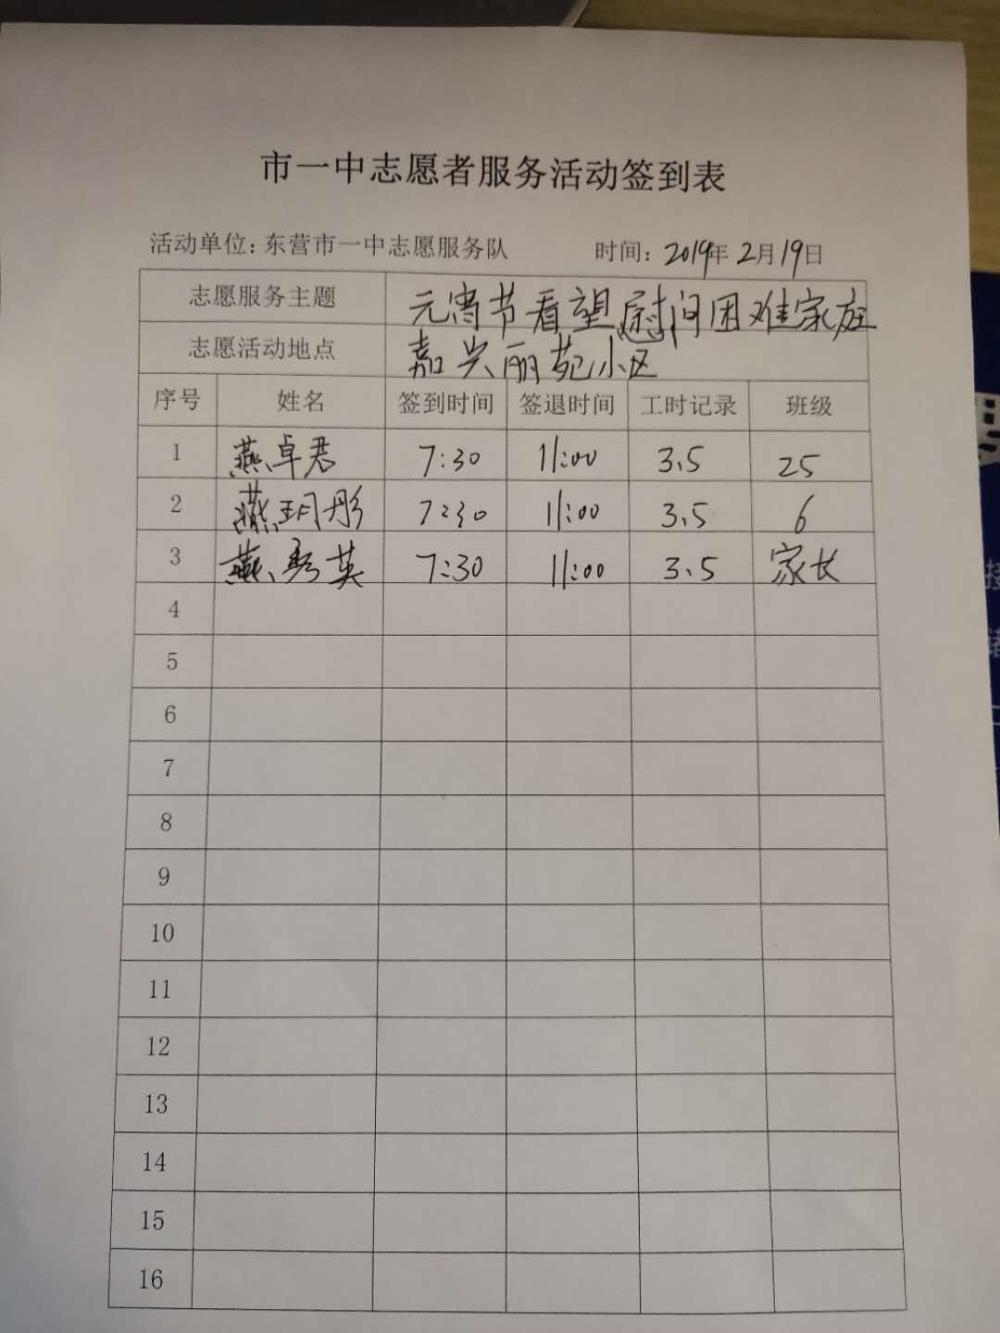 市一中志愿者服务活动签到表
活动单位:东营市一中志愿服务队 时间:2019年2月19日
志愿服务主题 元宵节看望慰问困难家庭
志愿活动地点 嘉兴丽苑小区
序号 姓名 签到时间 签退时间 工时记录 班级
1 燕卓君 7:30 11:00 3.5 25
2 燕玥彤 7:30 11:00 3.5 6
3 燕秀英 7:30 11:00 3.5 家长
4
5
6
7
8
9
10
11
12
13
14
15
16